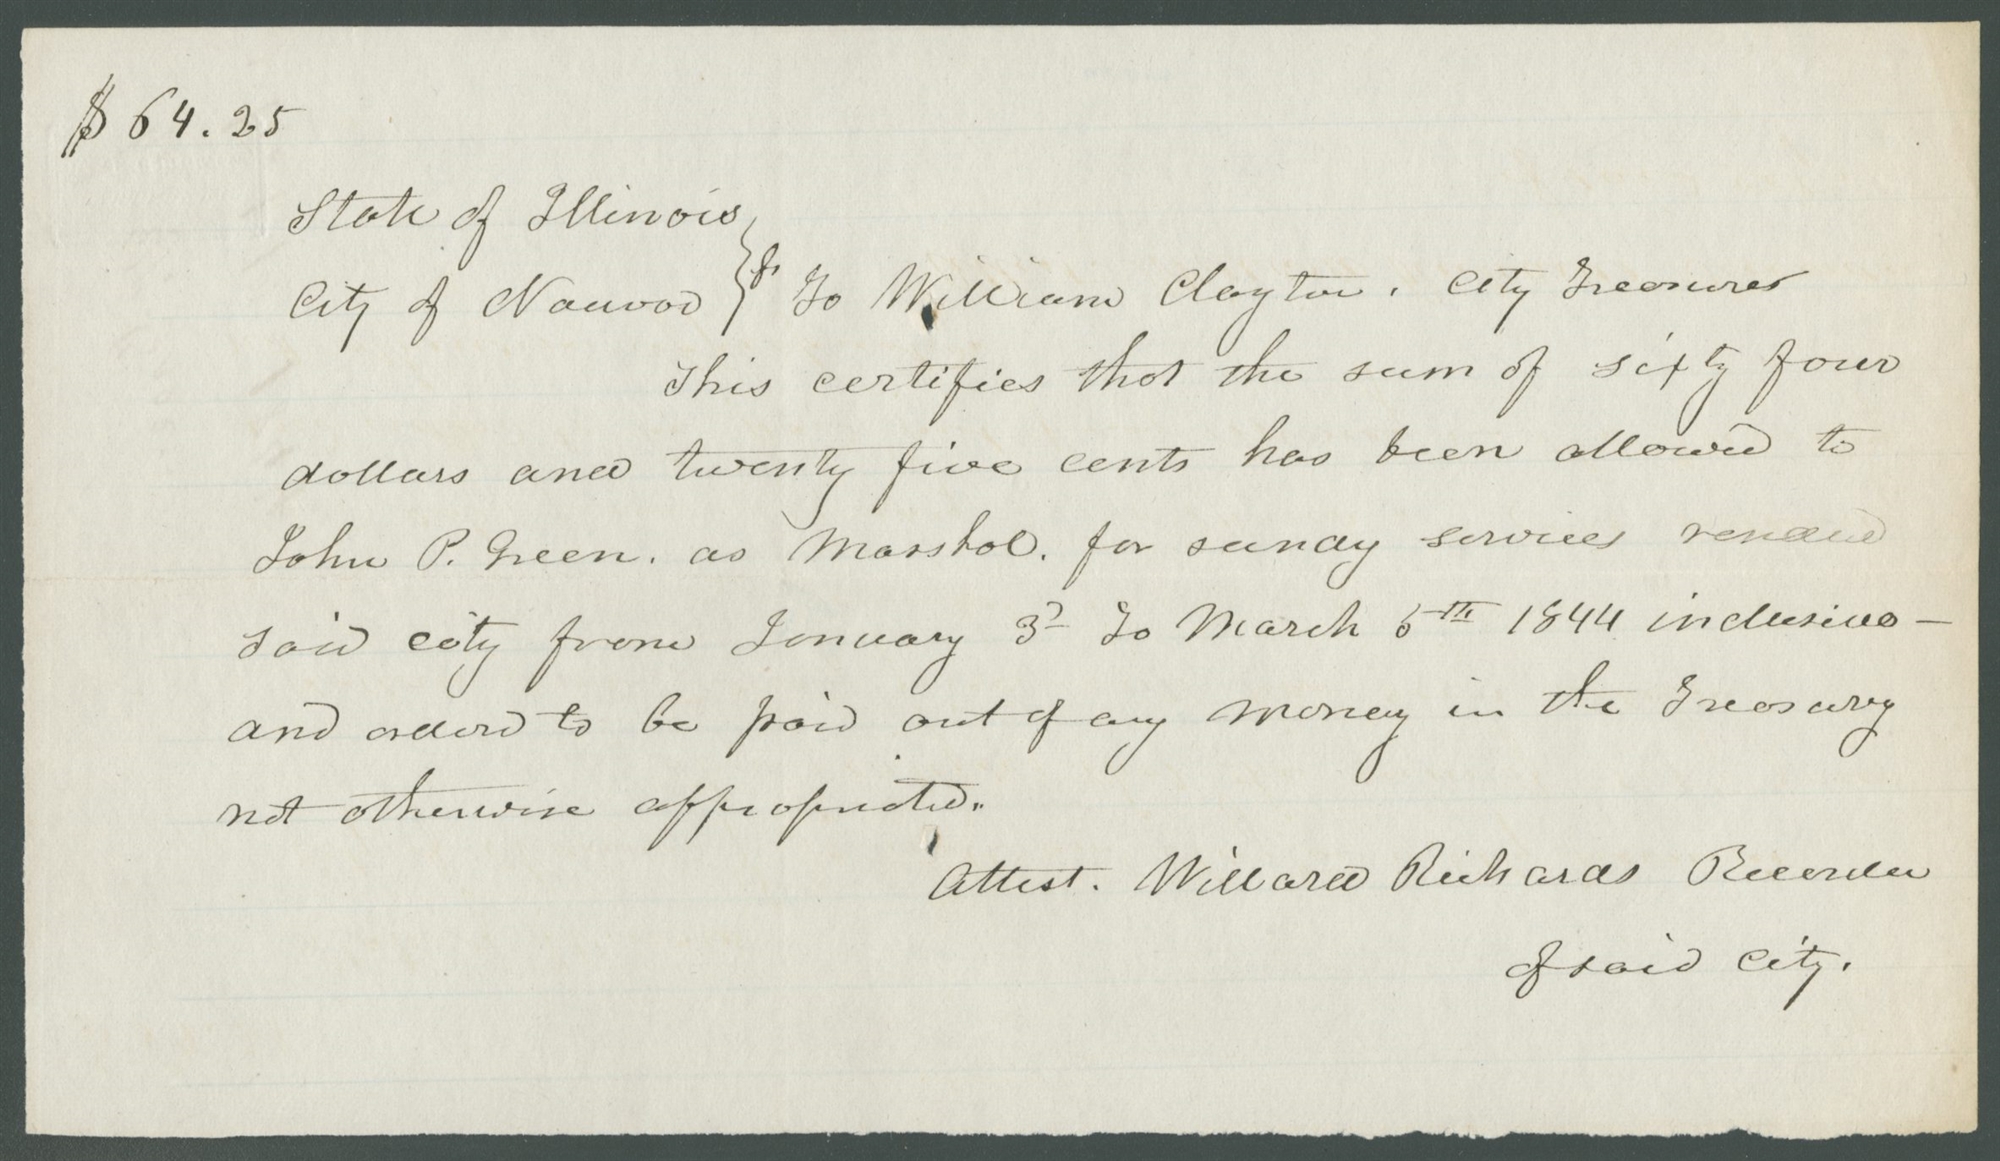 $64.25
State of Illinois
City of Nauvoo } To William Clayton. City Treasurer
This certifies that the sum of sixty four
dollars and twenty five cents has been allowed to
John P. Green. as Marshal. for sundry services rendered
said city from January 3d to March 5th 1844 inclusive—
and orderd to be paid out of any money in the Treasury
not otherwise appropriated.
Attest. Willard Richards Recorder
of said City.